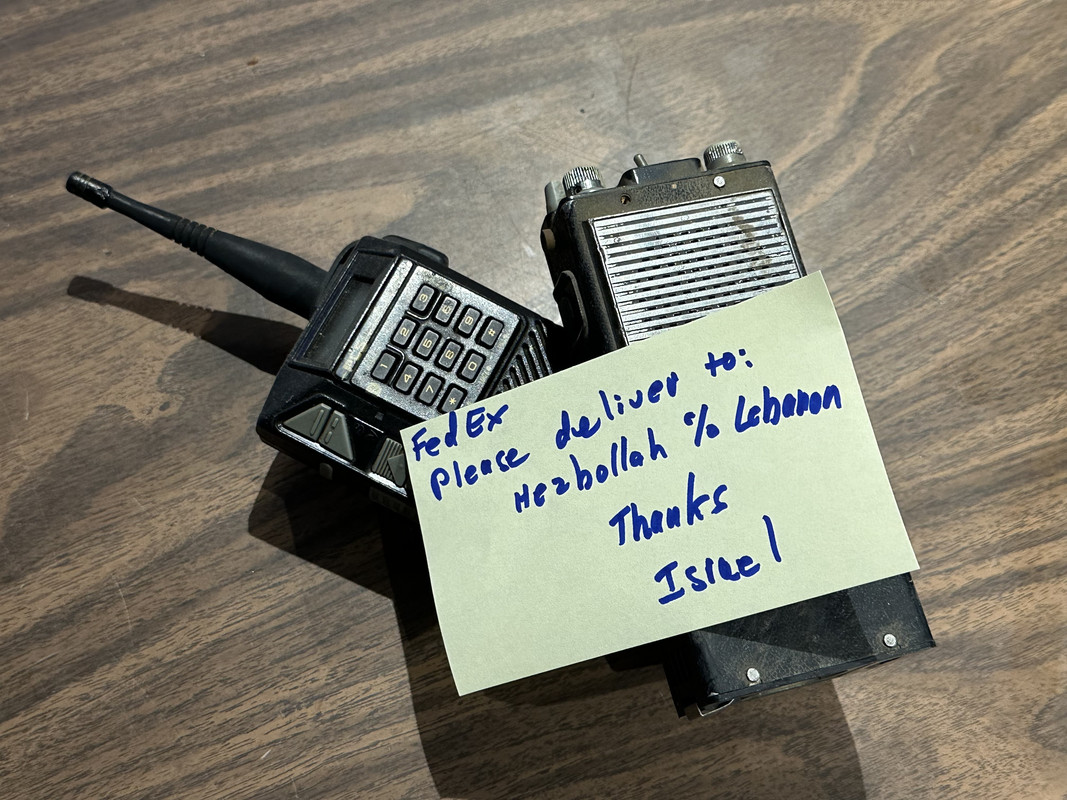 3 6 9 #
2 5 8 0
1 4 7 *
FedEx
Please deliver to:
Hezbollah % Lebanon
Thanks
Israel